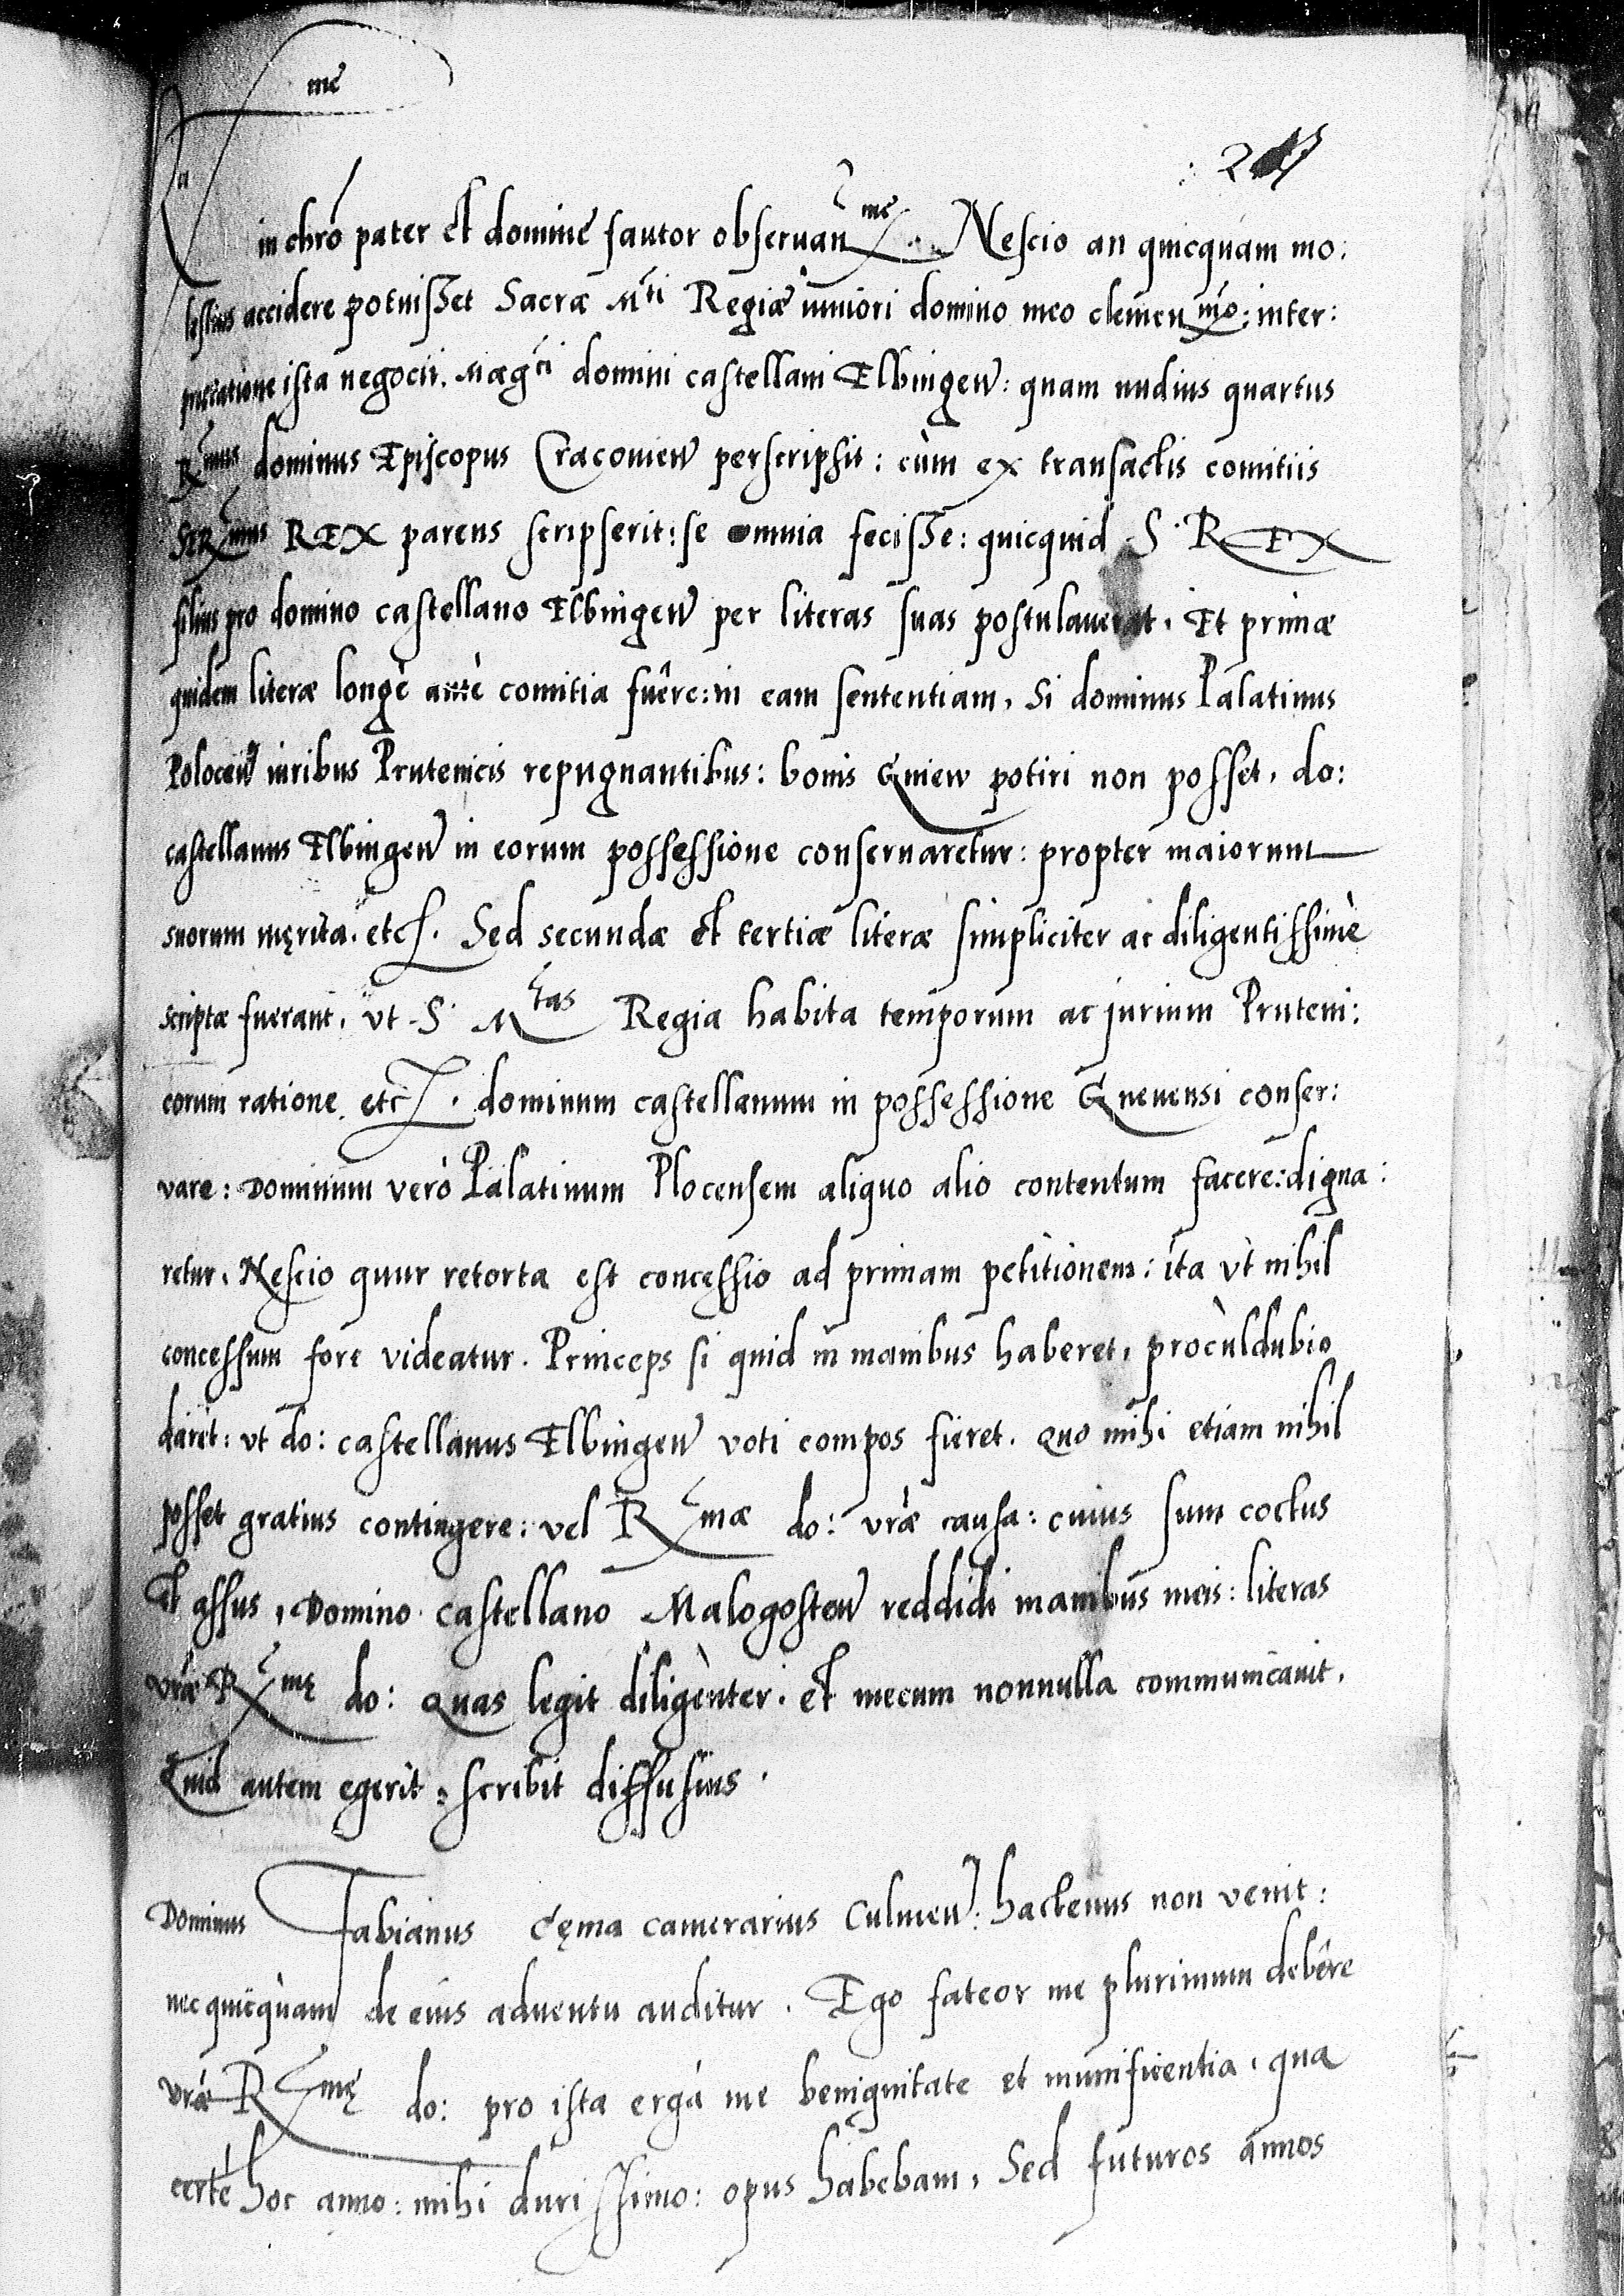 R me
in chrō pater et domine fautor obseruan me. Nescio an quicquam mo:
lestius accidere potuisset Sacræ M ti Regiæ iuniori domino meo clemen mo: inter:
prætatione ista negocii. Mag ci domini castellani Elbingen: quam nudius quartus
R mus dominus Episcopus Cracovien perscripsit: cùm ex transactis comitiis
SER mus REX parens scripserit: se omnia fecisse: quicquid S. REX
filius pro domino castellano Elbingen per literas suas postulauerat. Et primæ
quidem literæ longè antè comitia fuêre: in eam sententiam, Si dominus Palatinus
Plocen iuribus Prutenicis repugnantibus: bonis Gniew potiri non posset, do:
castellanus Elbingen in eorum possessione conseruaretur: propter maiorum
suorum męrita. etc. Sed secundæ et tertiæ literæ simpliciter ac diligentissimè
scriptæ fuerant, vt S. M tas Regia habita temporum ac jurium Pruteni:
corum ratione etc. dominum castellanum in possessione Gneuensi conser:
vare: Dominum verò Palatinum Plocensem aliquo alio contentum facere: digna:
retur. Nescio quur retorta est concessio ad primam petitionem: ita vt nihil
concessum fore videatur. Princeps si quid in manibus haberet, procùldubio
daret: vt do: castellanus Elbingen voti compos fieret. Quo mihi etiam nihil
posset gratius contingere: vel R mæ do: vræ causa: cuius sum coctus
Et assus, Domino castellano Malogosten reddidi manibus meis: literas
vræ R mę do: Quas legit diligènter. et mecum nonnulla communicauit.
Quid autem egerit: scribit diffusius.
Dominus Fabianus Cęma camerarius Culmen: hactenus non venit:
nec quicquam de eius aduentu auditur. Ego fateor me plurimum debêre
vræ R mę do: pro ista ergà me benignitate et munificentia, qua
certè hoc anno: mihi durissimo: opus habebam, Sed futuros annos